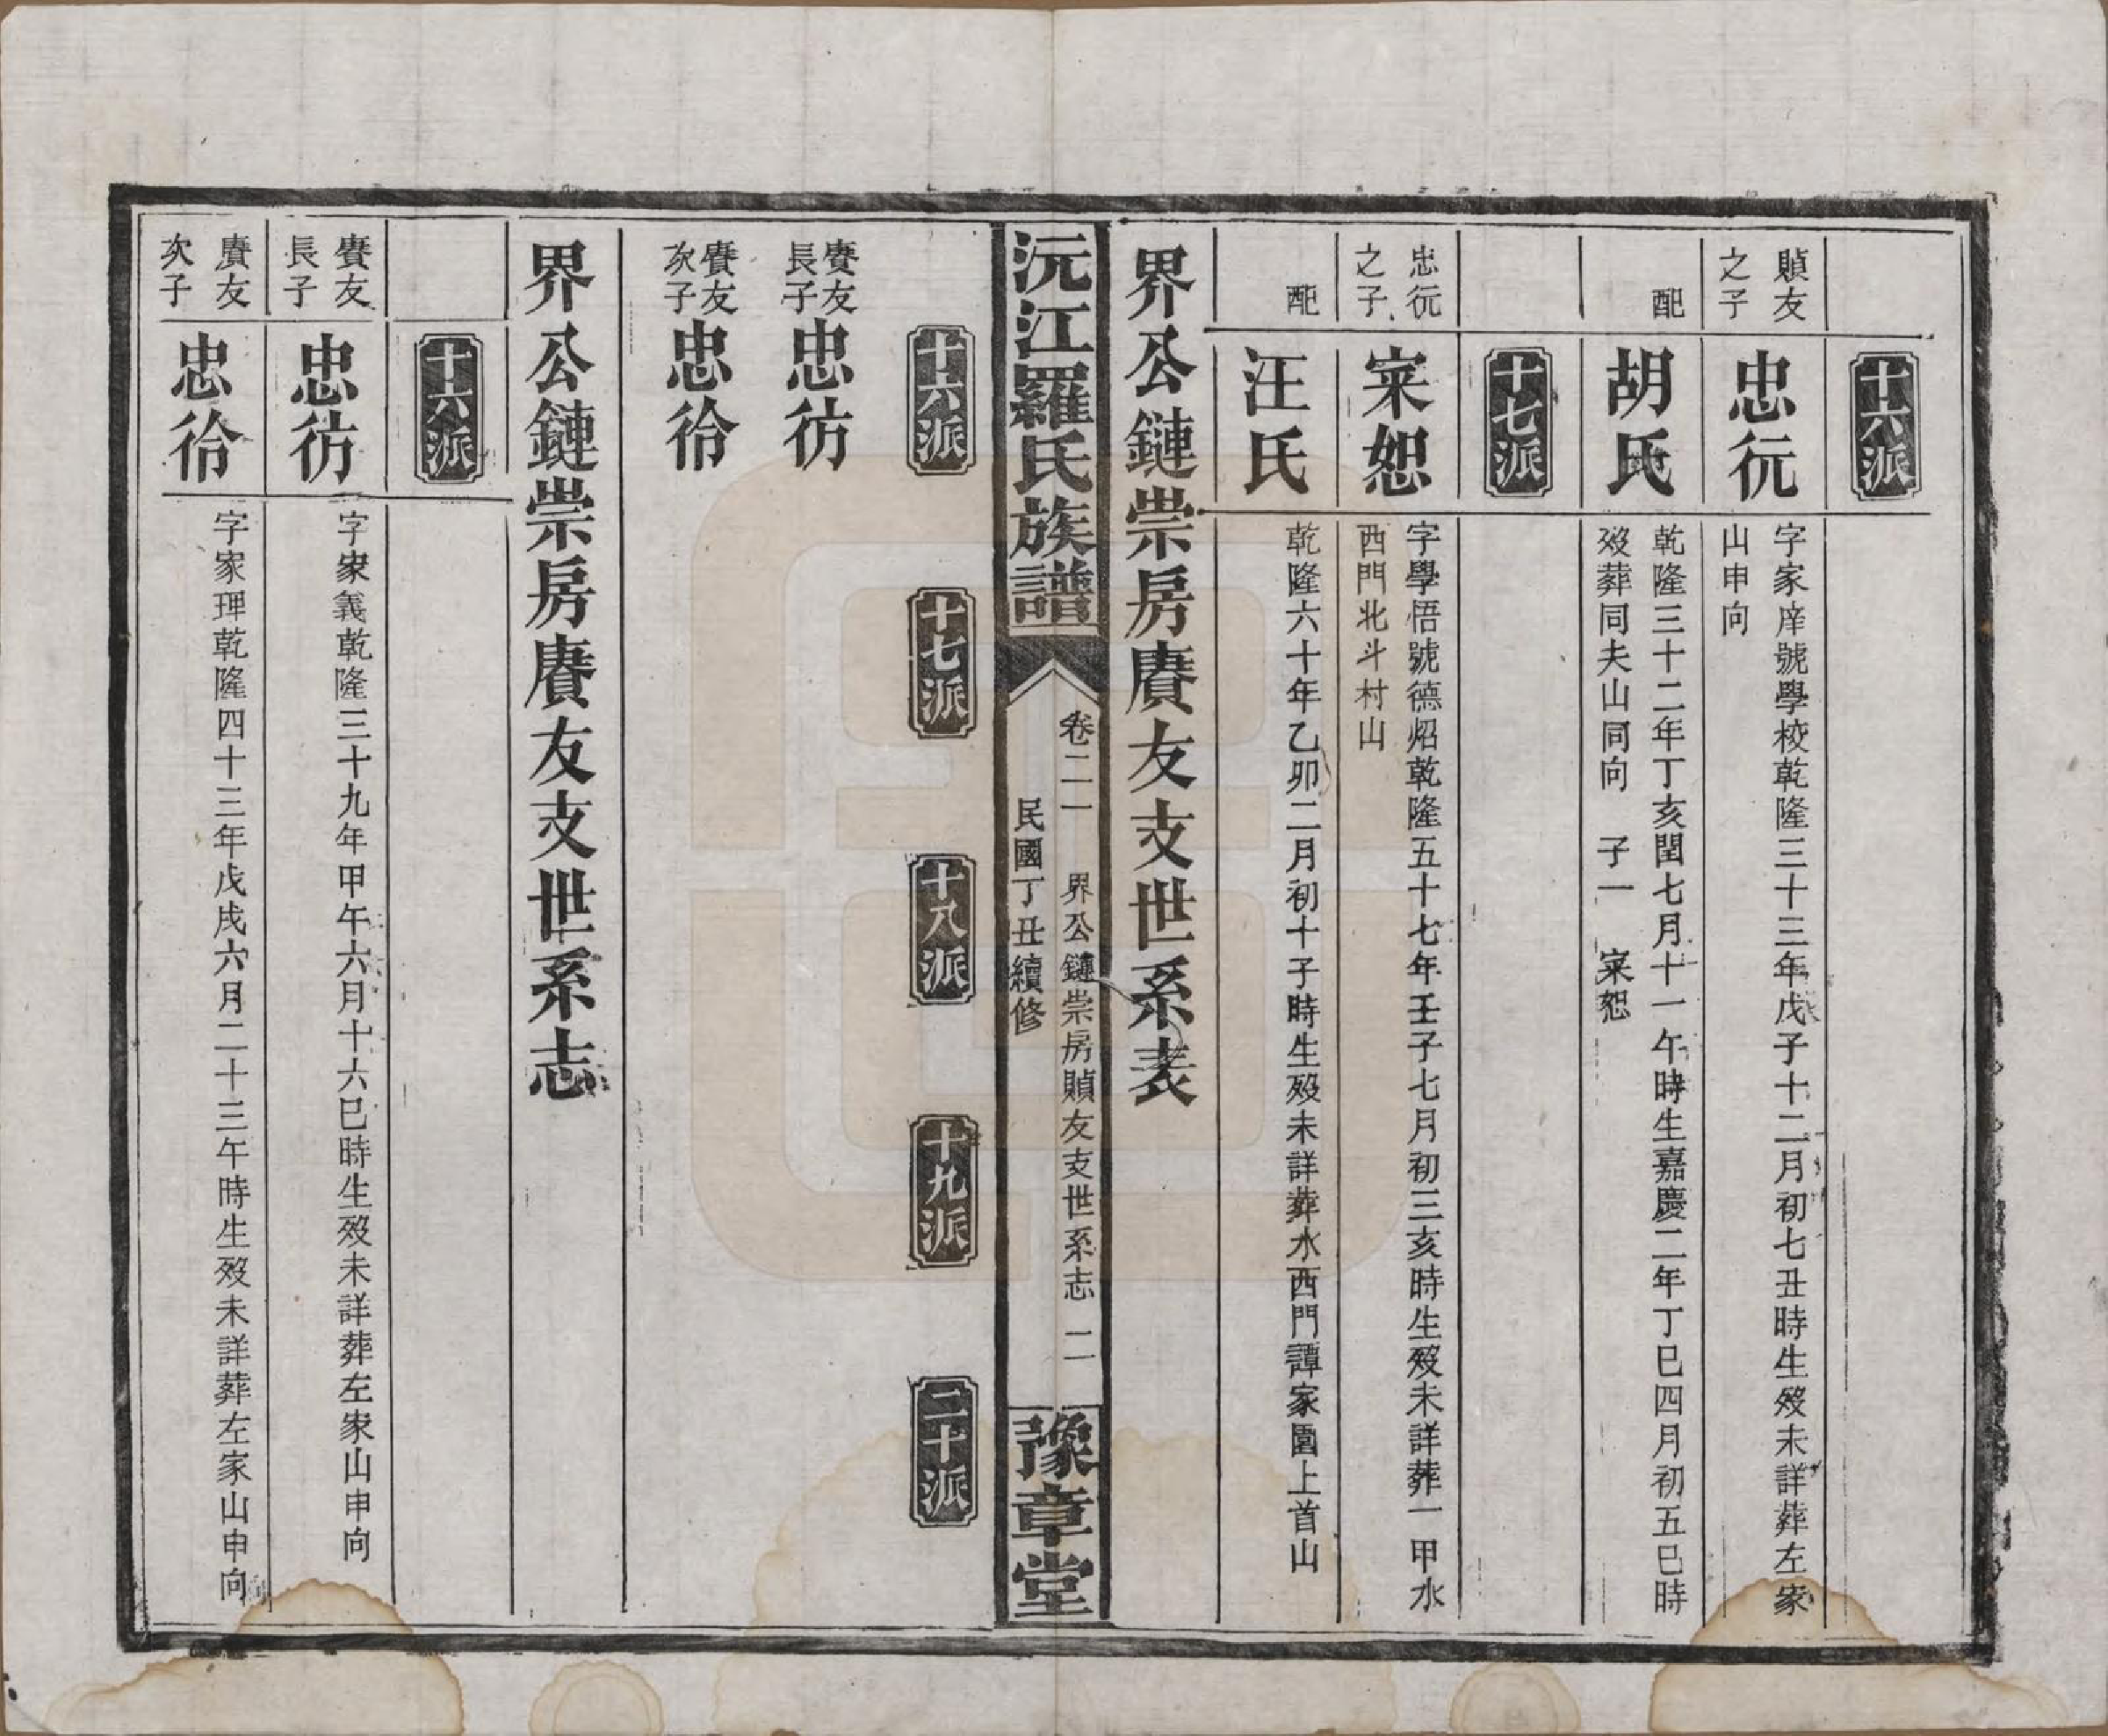 十六派
貞友之子
忠衏
字家庠號學校乾隆三十三年戊子十二月初七丑時生歿未詳葬左家
山申向
配
胡氏
乾隆三十二年丁亥閏七月十一午時生嘉慶二年丁巳四月初五巳時
歿葬同夫山同向 子一 寀恕
十七派
忠衏之子
寀恕
字學悟號德炤乾隆五十七年壬子七月初三亥時生歿未詳葬一甲水
西門北斗村山
配
汪氏
乾隆六十年乙卯二月初十子時生歿未詳葬水西門譚家園上首山
界公鏈崇房賡友支世系表
沅江羅氏族譜
卷二一 界公鏈崇房貞友支世系志 二
民國丁丑續修
豫章堂
十六派 十七派 十八派 十九派 二十派
賡友長子 忠彷
賡友次子 忠彾
界公鏈崇房賡友支世系志
十六派
賡友長子
忠彷
字家義乾隆三十九年甲午六月十六巳時生歿未詳葬左家山申向
賡友次子
忠彾
字家理乾隆四十三年戊戌六月二十三午時生歿未詳葬左家山申向